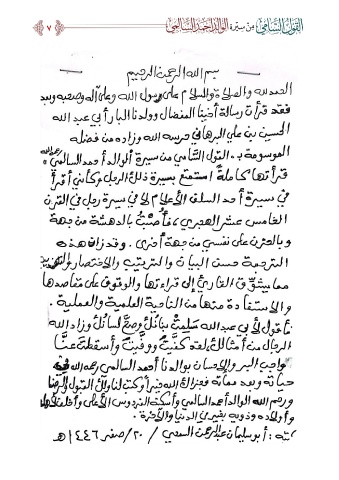 القول السامي من سيرة الوالد أحمد السالمي
٧
بسم الله الرحمن الرحيم
الحمد لله والصلاة والسلام على رسول الله وعلى آله وصحبه وبعد
فقد قرأت رسالة أخينا المفضال وولدنا البار أبي عبد الله
الحسين بن علي البرها في حرسه الله وزاده من فضله
الموسومة بـ: القول السامي من سيرة الوالد أحمد السالمي رحمه الله
قرأتها كاملة استمتع بسيرة ذلك الرجل وكأني أقرأ
في سيرة أحد السلف الأعلام لا في سيرة رجل في القرن
الخامس عشر الهجري، فأُصبتُ بالدهشة من جهة
وبالحزن على نفسي من جهة أخرى. وقد زان هذه
الترجمة حسن البيان والترتيب والاختصار
مما يشوِّق القارئ إلى قراءتها والوقوف على مقاصدها
والاستفادة منها من الناحية العلمية والعملية.
فأقول لأبي عبد الله سلمت بنانك وصحَّ لسانك وزاد الله
الرجال من أمثالك لقد كفيت ووفيت وأسقطت عنَّا
واجب البر والإحسان بوالدنا أحمد السالمي رحمه الله في
حياته وبعد مماته فجزاك الله خيراً وكتب لنا ولك القبول والرضا
ورحم الله الوالد أحمد السالمي وأسكنه الفردوس الأعلى
وأولاده وذويه بخيري الدنيا والآخرة.
كتبه: أبو سليمان عبد الرحمن / ٢٠ / صفر ١٤٤٦هـ